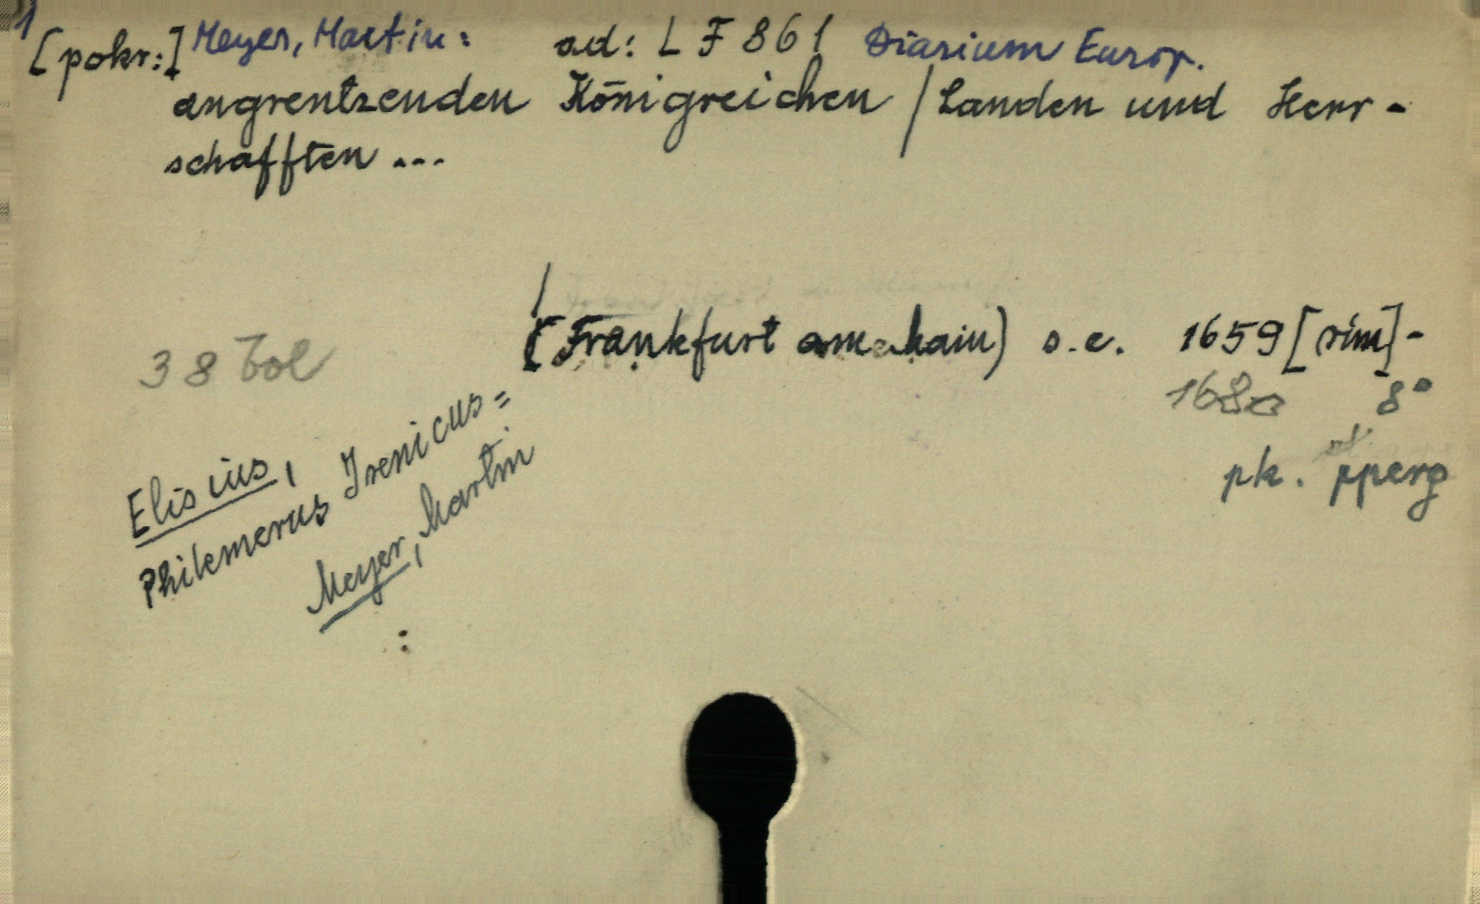 1
[pokr:] Meyer, Martin: ad: LF 861 Diarium Europ.
angrentzenden Königreichen / Landen und Herr-
schafften ...
(Frankfurt am Main) s.e. 1659 [rim]-
38 Bol
168 8°
pk. pperg
Elisius,
Philemerus Irenicus =
Meyer, Martin
: